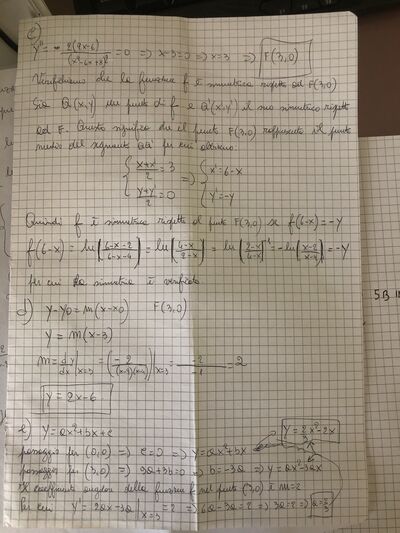 c)
y'' = - 2(2x-6) / (x²-6x+8)² = 0 => x-3=0 => x=3 => F(3,0)
Verifichiamo che la funzione f è simmetrica rispetto ad F(3,0)
Sia Q(x,y) un punto di f e Q'(x',y') il suo simmetrico rispetto
ad F. Questo significa che il punto F(3,0) rappresenta il punto
medio del segmento QQ' per cui abbiamo:
{ (x+x')/2 = 3 => { x'=6-x
{ (y+y')/2 = 0 { y'=-y
Quindi f è simmetrica rispetto al punto F(3,0) se f(6-x) = -y
f(6-x) = ln|(6-x-2)/(6-x-4)| = ln|(4-x)/(2-x)| = ln|(2-x)/(4-x)|⁻¹ = -ln|(x-2)/(x-4)| = -y
per cui la simmetria è verificata
d) y-y0 = m(x-x0) F(3,0)
y = m(x-3)
m = dy/dx |x=3 = (- 2/((x-2)(x-4)))|x=3 = -2/-1 = 2
y = 2x-6
e) y = ax²+bx+c
passaggio per (0,0) => c=0 => y=ax²+bx
passaggio per (3,0) => 9a+3b=0 => b=-3a => y=ax²-3ax
Il coefficiente angolare della funzione f nel punto (3,0) è m=2
Per cui y' = 2ax-3a |x=3 = 2 => 6a-3a=2 => 3a=2 => a=2/3
y = 2/3 x²-2x
5B